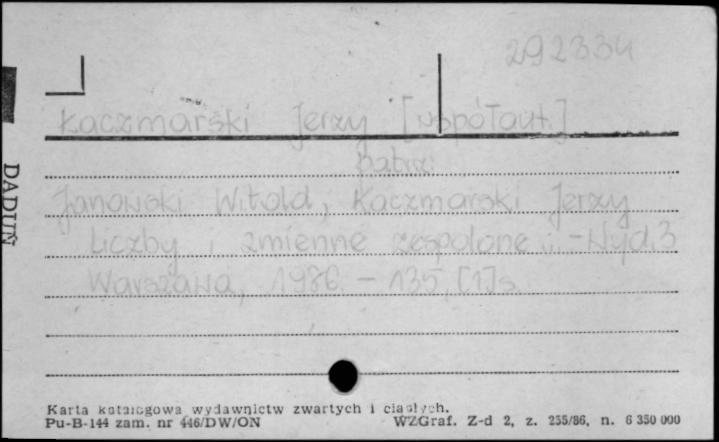 292334
Kaczmarski Jerzy [współaut.]
patrz:
Janowski Witold, Kaczmarski Jerzy
Liczby i zmienne zespolone .- Wyd. 3
Warszawa, 1986. - 135, [1] s.
DADUŃ
Karta katalogowa wydawnictw zwartych i ciągłych.
Pu-B-144 zam. nr 446/DW/ON
WZGraf. Z-d 2, z. 255/86, n. 6 350 000